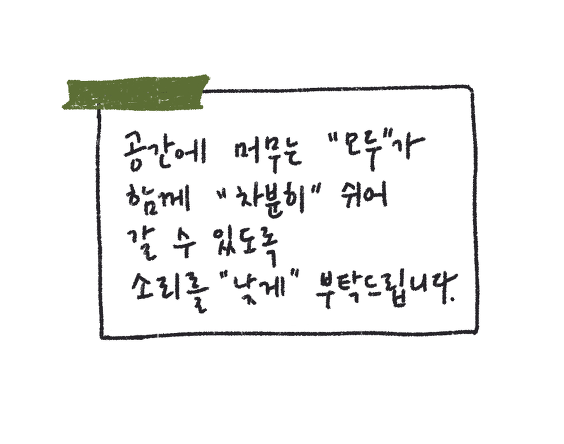 공간에 머무는 "모두"가
함께 "차분히" 쉬어
갈 수 있도록
소리를 "낮게" 부탁드립니다.